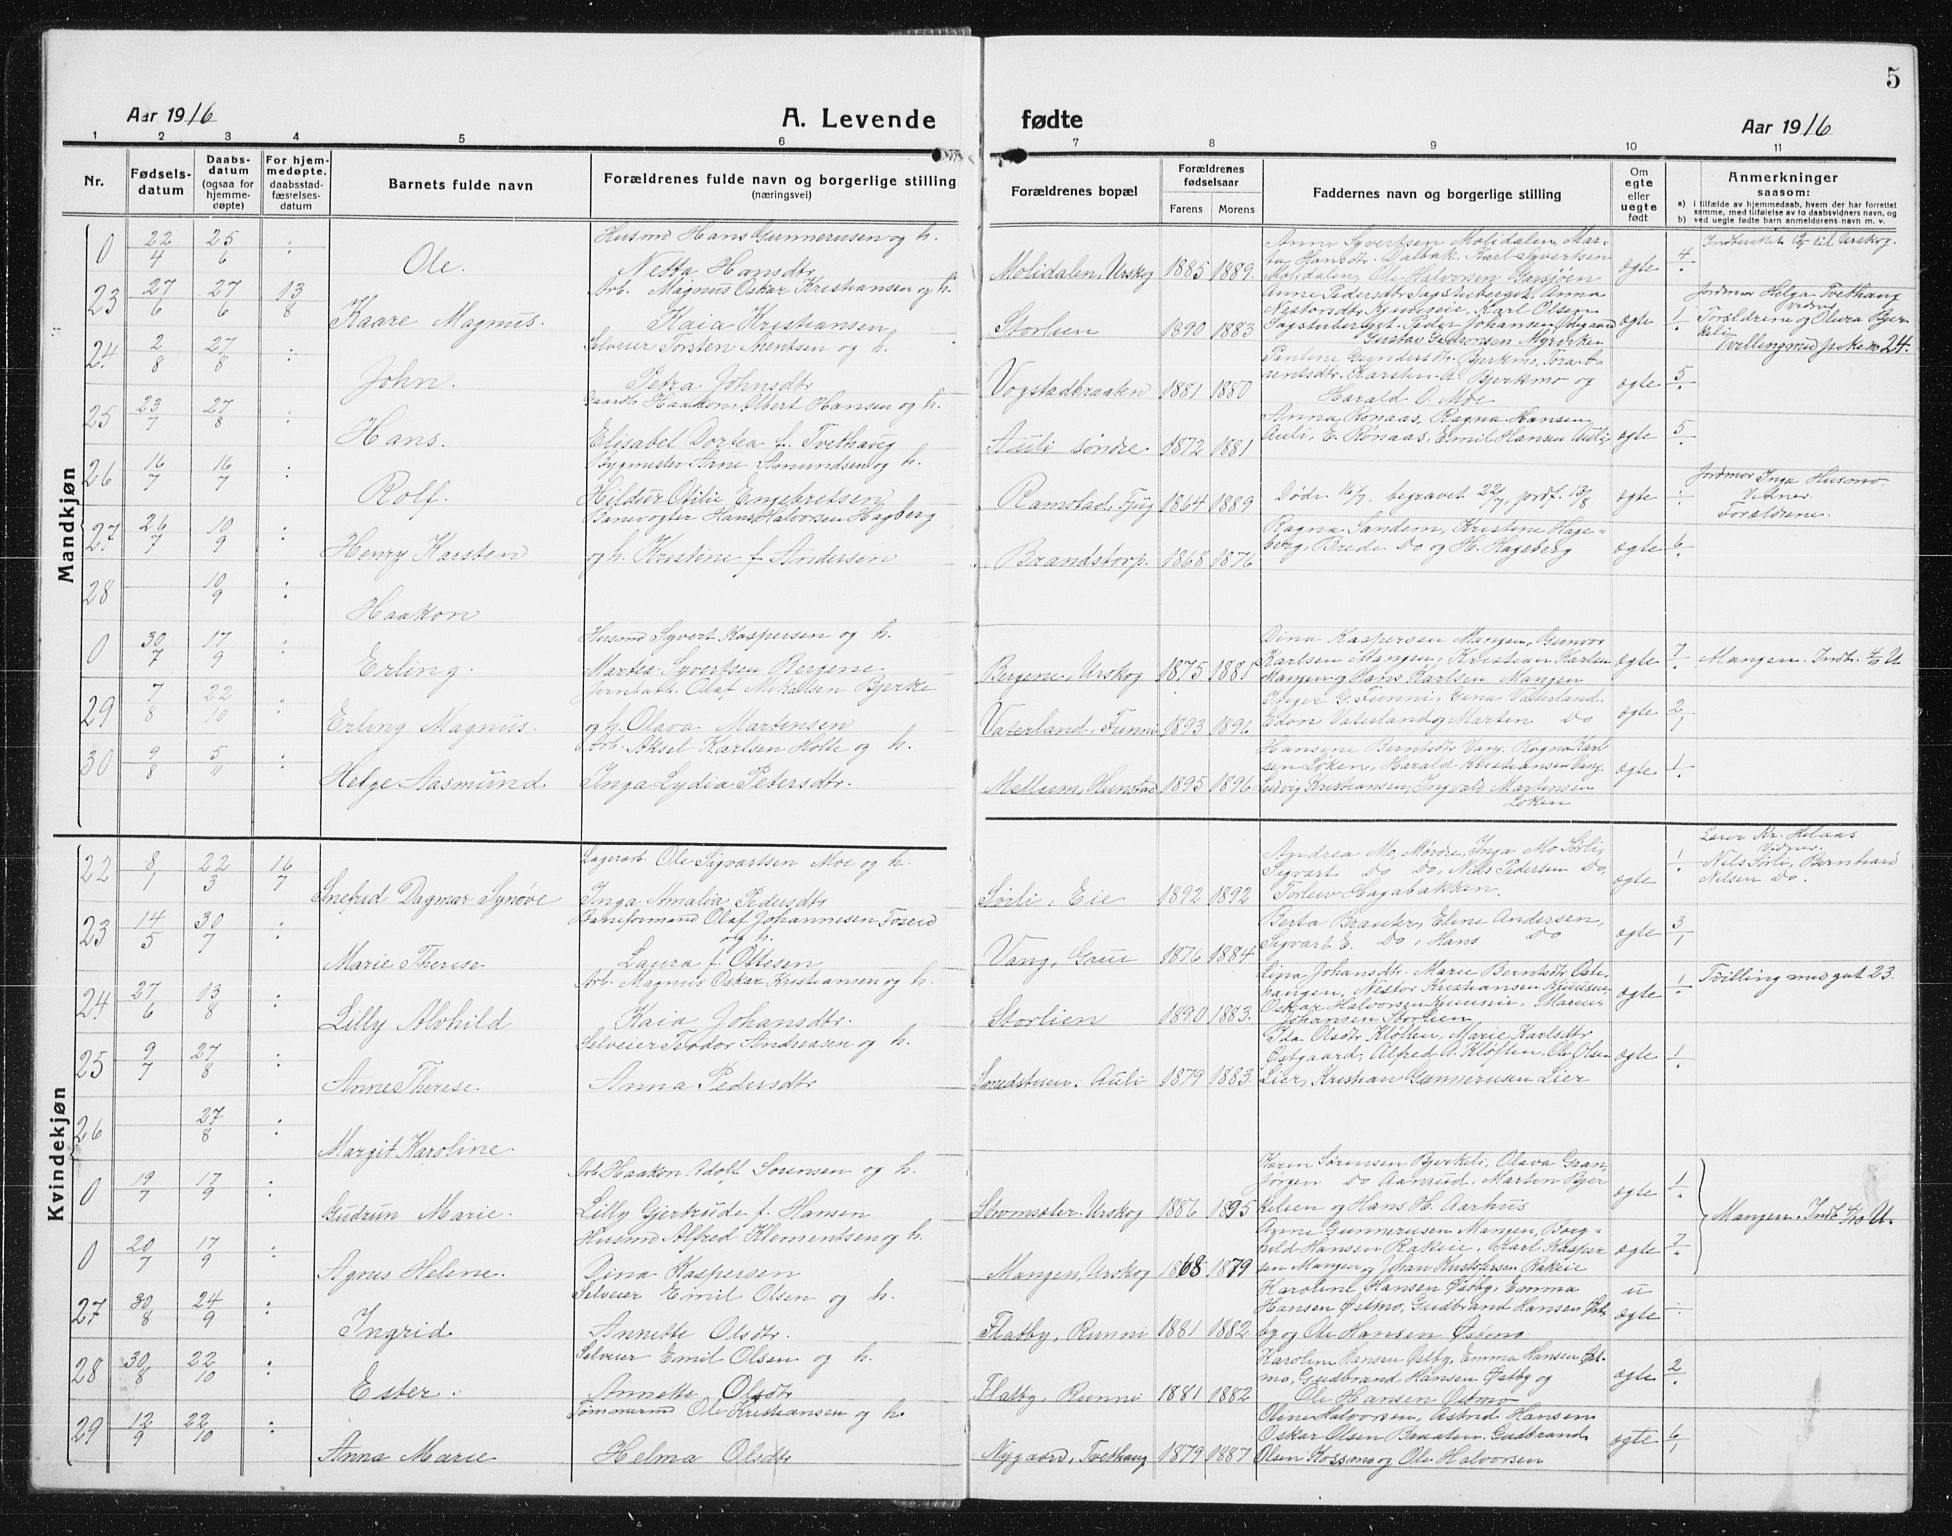 5
Aar 1916
A. Levende
fødte
Aar 1916
1 2 3 4 5 6 7 8 9 10 11
Nr.
Fødsels-
datum
Daabs-
datum
(ogsaa for
hjemme-
døpte)
For hjem-
medøpte,
daabsstad-
fæstelses-
datum
Barnets fulde navn
Forældrenes fulde navn og borgerlige stilling
(næringsvei)
Forældrenes bopæl
Forældrenes
fødselsaar
Farens Morens
Faddernes navn og borgerlige stilling
Om
egte
eller
uegte
født
Anmerkninger
saasom:
a) i tilfælde av hjemmedaab, hvem der har forrettet
samme, med tilføielse av to daabsvidners navn, og
b) ved uegte fødte barn anmeldorens navn m. v.
Mandkjøn
0 22/4 25/6 : Ole.
Husmd Hans Gunnerusen og h.
Netta Hansdtr
Molidalen, Urskog 1885 1889
Anne Syvertsen Molidalen, Mar-
ta Hansdtr. Dalbak. Karl Syvertsen
Molidalen, Ole Halvorsen
ægte 4/.
til Urskog.
23 27/6 27/6 13/8 Kaare Magnus.
Arb. Magnus Oskar Kristiansen og h.
Kaia Kristiansen
Storlien 1890 1883
Anne Pedersdtr Sagstuberget, Anna
Nestorsdtr. Karl Olsen
Sagstuberget, Peder Johansen Ødegaard
Gustav Gulbrandsen Myrviken
ægte 1/.
Jordmor Helga Tvethaug
Vidner
Forældrene og Oliva Bjer-
keli
Tvilling med pike no 24.
24. 2/8 27/8 : John.
Selveier Torsten Arentsen og h.
Petra Johnsdtr
Vogstadbraaten 1881 1880
Pauline Gundersdtr. Bjerkmo, Tora A-
rentsdtr. Karsten A. Bjerkmo og
Harald O. Moe
ægte 5/.
25 23/7 27/8 : Hans.
Gaardbr. Haakon Albert Hansen og h.
Elisabet Dortea f. Tvethaug
Auli søndre. 1872 1881
Anna Rønaas, Ragna Hansen
Auli, E. Rønaas, Emil Hansen Auli
ægte 5/.
26 16/7 16/7 : Rolf.
Bygmester Arne Amundsen og h.
Hildur Otilie Engebretsen
Ramstad, Fjug 1864 1889
Døde 16/7. begravet 22/7 jordf. 13/8
ægte :
Jordmor Inga Husmo
Vidner
Forældrene.
27 26/7 10/9 : Henry Karsten
Banevogter Hans Halvorsen Hagberg
og h. Kristine f. Andersen
Brandstorp. 1868 1876
Ragna Sandem, Kristine Hage-
berg, Brede Do og H. Hageberg
ægte 6/.
28 10/9 : Haakon
0 30/7 17/9 : Erling.
Husmd Syvert Kaspersen og h.
Martea Syvertsen Bergene
Bergene, Urskog 1875 1881
Dina Kaspersen Mangen, Gunvor
Karlsen Mangen, Kristian Karlsen
Mangen og Hans Karlsen Mangen
ægte 7/.
Mangen. Indb. 4/10 U
29 7/8 22/10 : Erling Magnus.
Jernbatb. Olaf Mikalsen Bjerke
og h. Olava Martensen
Vaterland, Funni 1893 1896
G. Funni, Gina Vaterland.
Edon Vaterland og Martin Do
ægte 2/1
30 9/8 5/11 : Helge Aasmund
Arb. Aksel Karlsen Holte og h.
Inga Lydia Pedersdtr.
Mellum, Hunstad 1895 1896
Hansine Berntsdtr Vang, Ragna Karl-
sen Løken, Harald Kristiansen Vang,
Ludvig Kristiansen, Ingvald Martinsen
Løken
ægte 1/.
Kvindekjøn
22 8/1 22/3 16/7 Snefrid Dagmar Synøve
Lagerarb. Ole Sigvartsen Moe og h.
Inga Amalia Pedersdtr
Sørli, Eie 1892 1892
Andrea Mo, Mørdre, Inga Mo Sørli,
Sigvart Do Do, Nils Pedersen Do,
Torleiv Hagabakken.
ægte 1/.
Lærer Kr. Helaas
Vidner
Nils Sørli, Bernhard
Nilsen Do.
23 14/5 30/7 : Marie Therese
Baneformand Olaf Johannesen Foseid
og h.
Laura f. Ottesen
Vang, Grue 1876 1884
Berta Brauter, Eline Andersen,
Sigvart E. Do, Hans Do
ægte 3/1
24 27/6 13/8 : Lilly Alvhild
Arb. Magnus Oskar Kristiansen og h.
Kaia Johansdtr.
Storlien 1890 1883.
Lina Johansdtr. Marie Berntsdtr Oste-
haugen, Nestor Kristiansen
Oskar Halvorsen Marius
Johansen Storlien
ægte 1/.
Tvilling med gut 23.
25 9/7 27/8 : Anne Therese.
Selveier Teodor Andreasen og h.
Anna Pedersdtr
Smedstuen. Auli 1879 1883.
Ida Olsdtr Kløften, Marie Karlsdtr
Østgaard, Alfred A. Kløften, Ole Olsen
Lier, Kristian Gunnerusen Lier
ægte 1/.
26 27/8 : Margit Karoline.
0 19/7 17/9 : Gudrun Marie.
Arb. Haakon Adolf Sørensen og h.
Lilly Gjertrude f. Hansen
Strømsæter. Urskog 1886 1895
Karen Sørensen Bjerkeli, Olava Gran,
Jørgen Do Aanrud, Martin Bjer
kelien og Hans H. Aarhus
ægte 1/.
Mangen. Indb. 4/10 U.
0 20/7 17/9 : Agnes Helene.
Husmd Alfred Klementsen og h.
Dina Kaspersen
Mangen, Urskog 1868 1879
Agne Gunnerusen Mangen, Borg-
hild Hansen Rakeie, Karl Kasper
sen Mangen og Johan Kristofersen Rakeie
ægte 7/.
27 30/8 24/9 : Ingrid
Selveier Emil Olsen og h.
Annette Olsdtr.
Flatby, Runni 1881 1882
Karoline Hansen Østby, Emma
Hansen Østmo, Gudbrand Hansen Øst-
by og Ole Hansen Østmo
u
ægte
28 30/8 22/10 : Ester.
Selveier Emil Olsen og h.
Annette Olsdtr
Flatby, Runni 1881 1882
Karoline Hansen Østby, Emma Hansen Øst-
mo, Gudbrand Hansen Østby og
Ole Hansen Østmo
ægte 2/.
29 12/9 22/10 : Anna Marie
Tømmermd Ole Kristiansen og h.
Helma Olsdtr
Nygaard, Tvethaug 1879 1887
Oline Halvorsen, Astrid Hansen
Oskar Olsen Braaten, Gudbrand
Olsen Kossmo og Ole Halvorsen
ægte 6/1